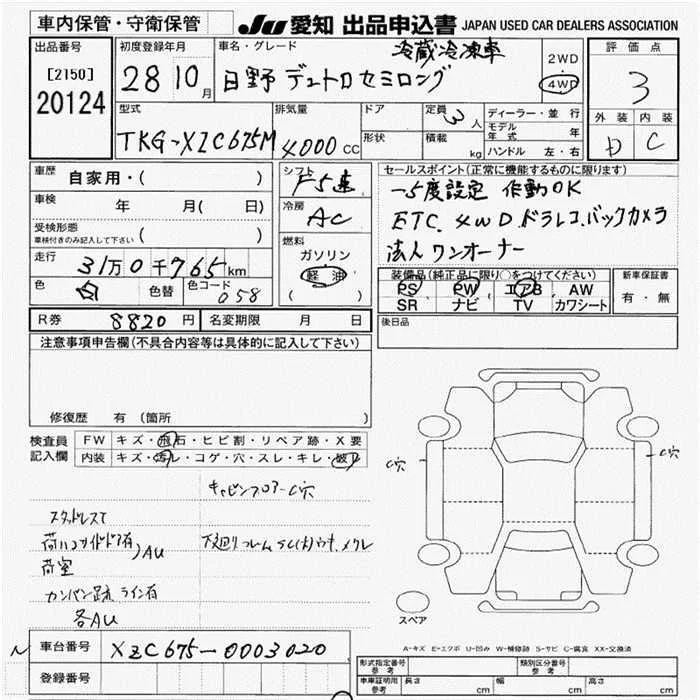 車内保管・守衛保管
JU 愛知 出品申込書 JAPAN USED CAR DEALERS ASSOCIATION
出品番号
[2150]
20124
初度登録年月
28 10 月
車名・グレード
冷蔵冷凍車
日野 デュトロ セミロング
2WD
4WD
評価点
3
外装 内装
D C
型式
TKG-XZC675M
排気量
4000 CC
ドア
形状
定員 3 人
積載 kg
ディーラー・並行
モデル年式 年
ハンドル 左・右
車歴 自家用・( )
車検 年 月( 日)
受検形態
車検付きのみ記入して下さい ( )
走行 31万0千765km
色 白 色替 色コード 058
シフト
F5速
冷房
AC
燃料
ガソリン
軽油
( )
セールスポイント(正常に機能するものに限ります)
-5度設定 作動OK
ETC. 4WD.ドラレコ.バックカメラ
法人ワンオーナー
装備品(純正品に限り○をつけてください)
PS PW エアB AW
SR ナビ TV カワシート
新車保証書
有・無
R券 8820円 名変期限 月 日
後日品
注意事項申告欄(不具合内容等は具体的に記入して下さい)
修復歴 有(箇所 )
検査員記入欄
FW キズ・飛石・ヒビ割・リペア跡・X要
内装 キズ・汚レ・コゲ・穴・スレ・キレ・破レ
キャビンフロアーC穴
スタッドレスT
荷ハコサイドドア有
荷室
)AU
下廻りフレーム
カンバン足跡、ライン有
各AU
C穴
C穴
スペア
A-キズ E-エクボ U-凹み W-補修跡 S-サビ C-腐食 XX-交換済
N
車台番号 XZC675-0003020
登録番号
形式指定番号 参考
類別区分番号 参考
車車証明用 参考 長さ cm 幅 cm 高さ cm